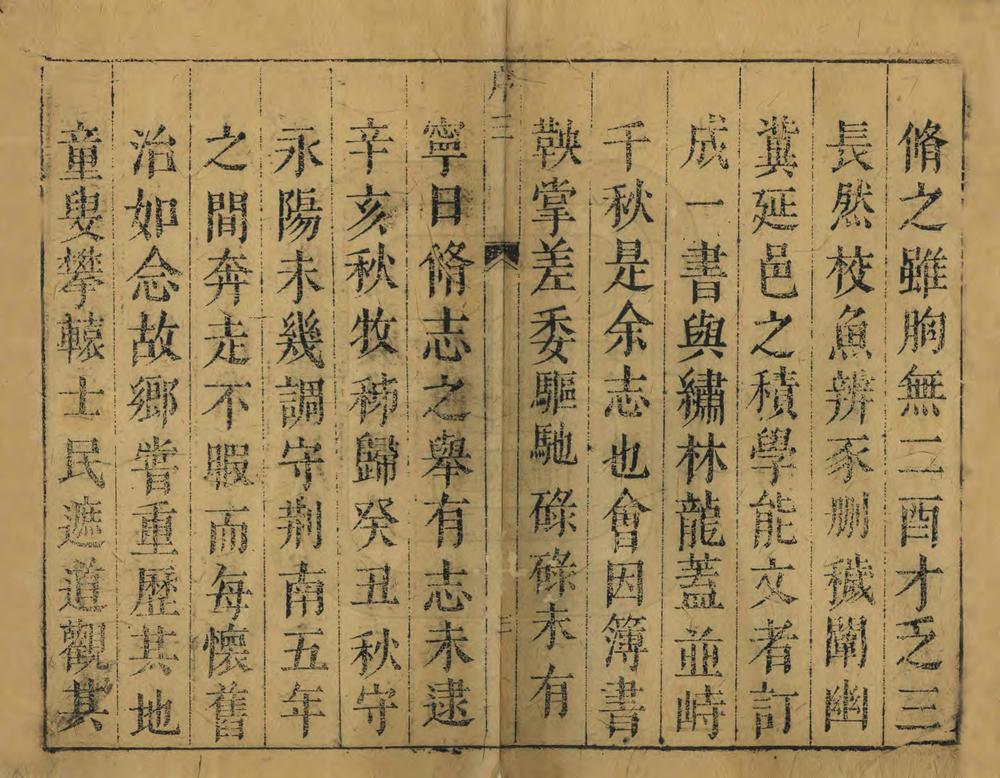 脩之雖胸無二酉才乏三
長然校魚辨豕刪穢闡幽
冀延邑之積學能文者訂
成一書與繡林龍蓋並峙
千秋是余志也會因簿書
鞅掌差委驅馳碌碌未有
序三
三
寧日脩志之舉有志未逮
辛亥秋牧秭歸癸丑秋守
永陽未幾調守荆南五年
之間奔走不暇而每懷舊
治如念故鄉嘗重歷其地
童叟攀轅士民遮道觀其